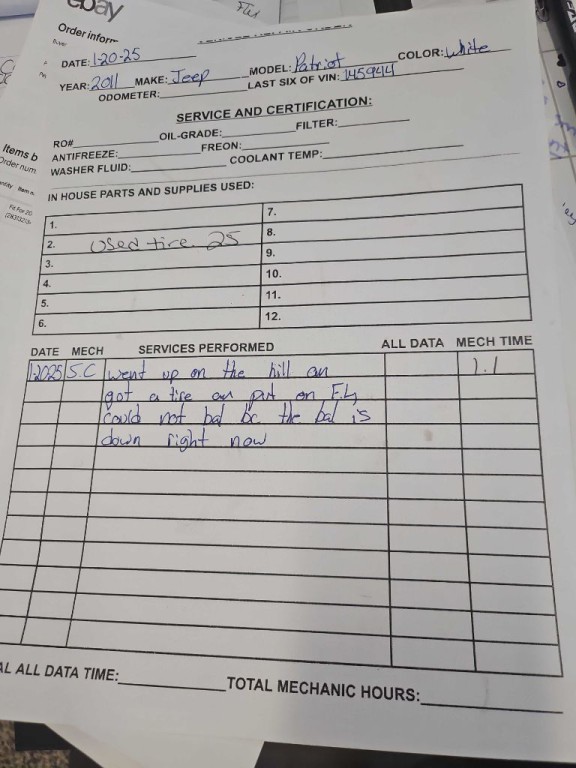 ebay
Order inform
DATE: 1-20-25
YEAR: 2011 MAKE: Jeep MODEL: Patriot COLOR: White
ODOMETER: LAST SIX OF VIN: 145944
SERVICE AND CERTIFICATION:
RO# OIL-GRADE: FILTER:
ANTIFREEZE: FREON:
WASHER FLUID: COOLANT TEMP:
Items b
Order num
IN HOUSE PARTS AND SUPPLIES USED:
1. 7.
2. Used tire 25 8.
3. 9.
4. 10.
5. 11.
6. 12.
DATE MECH SERVICES PERFORMED ALL DATA MECH TIME
1-2025 S.C went up on the hill an 1.1
got a tire an put on F.L
could not bal bc the bal is
down right now
AL ALL DATA TIME: TOTAL MECHANIC HOURS: